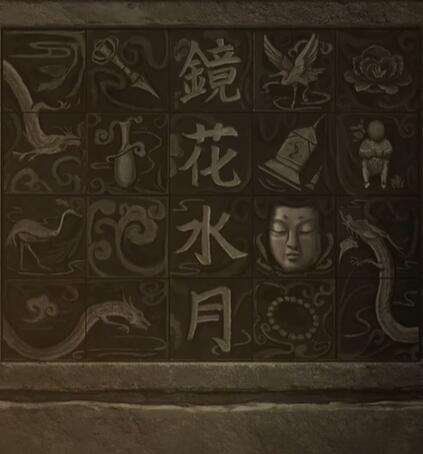 鏡花水月